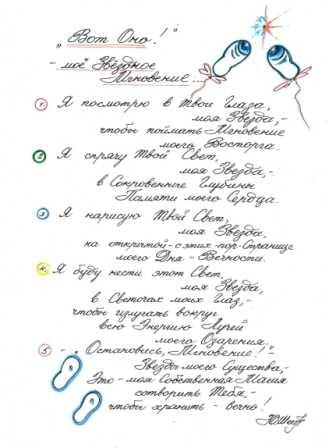 „Вот Оно!"
- моё Звёздное
Мгновение...
1 Я посмотрю в Твои Глаза,
моя Звезда,-
чтобы поймать Мгновение
моего Восторга.
2 Я спрячу Твой Свет,
моя Звезда,-
в Сокровенные Глубины
Памяти моего Сердца.
3 Я нарисую Твой Свет,
моя Звезда,
на открытой-с этих-пор-Странице
моего Дня-Вечности.
4 Я буду нести этот Свет,
моя Звезда,
в Светочах моих Глаз,-
чтобы излучать вокруг
всю Энергию Лучей
моего Озарения.
5 - „Остановись, Мгновение!"-
Звезды моего Существа,-
Это-моя Собственная Магия
сотворить Тебя,-
чтобы хранить - вечно!